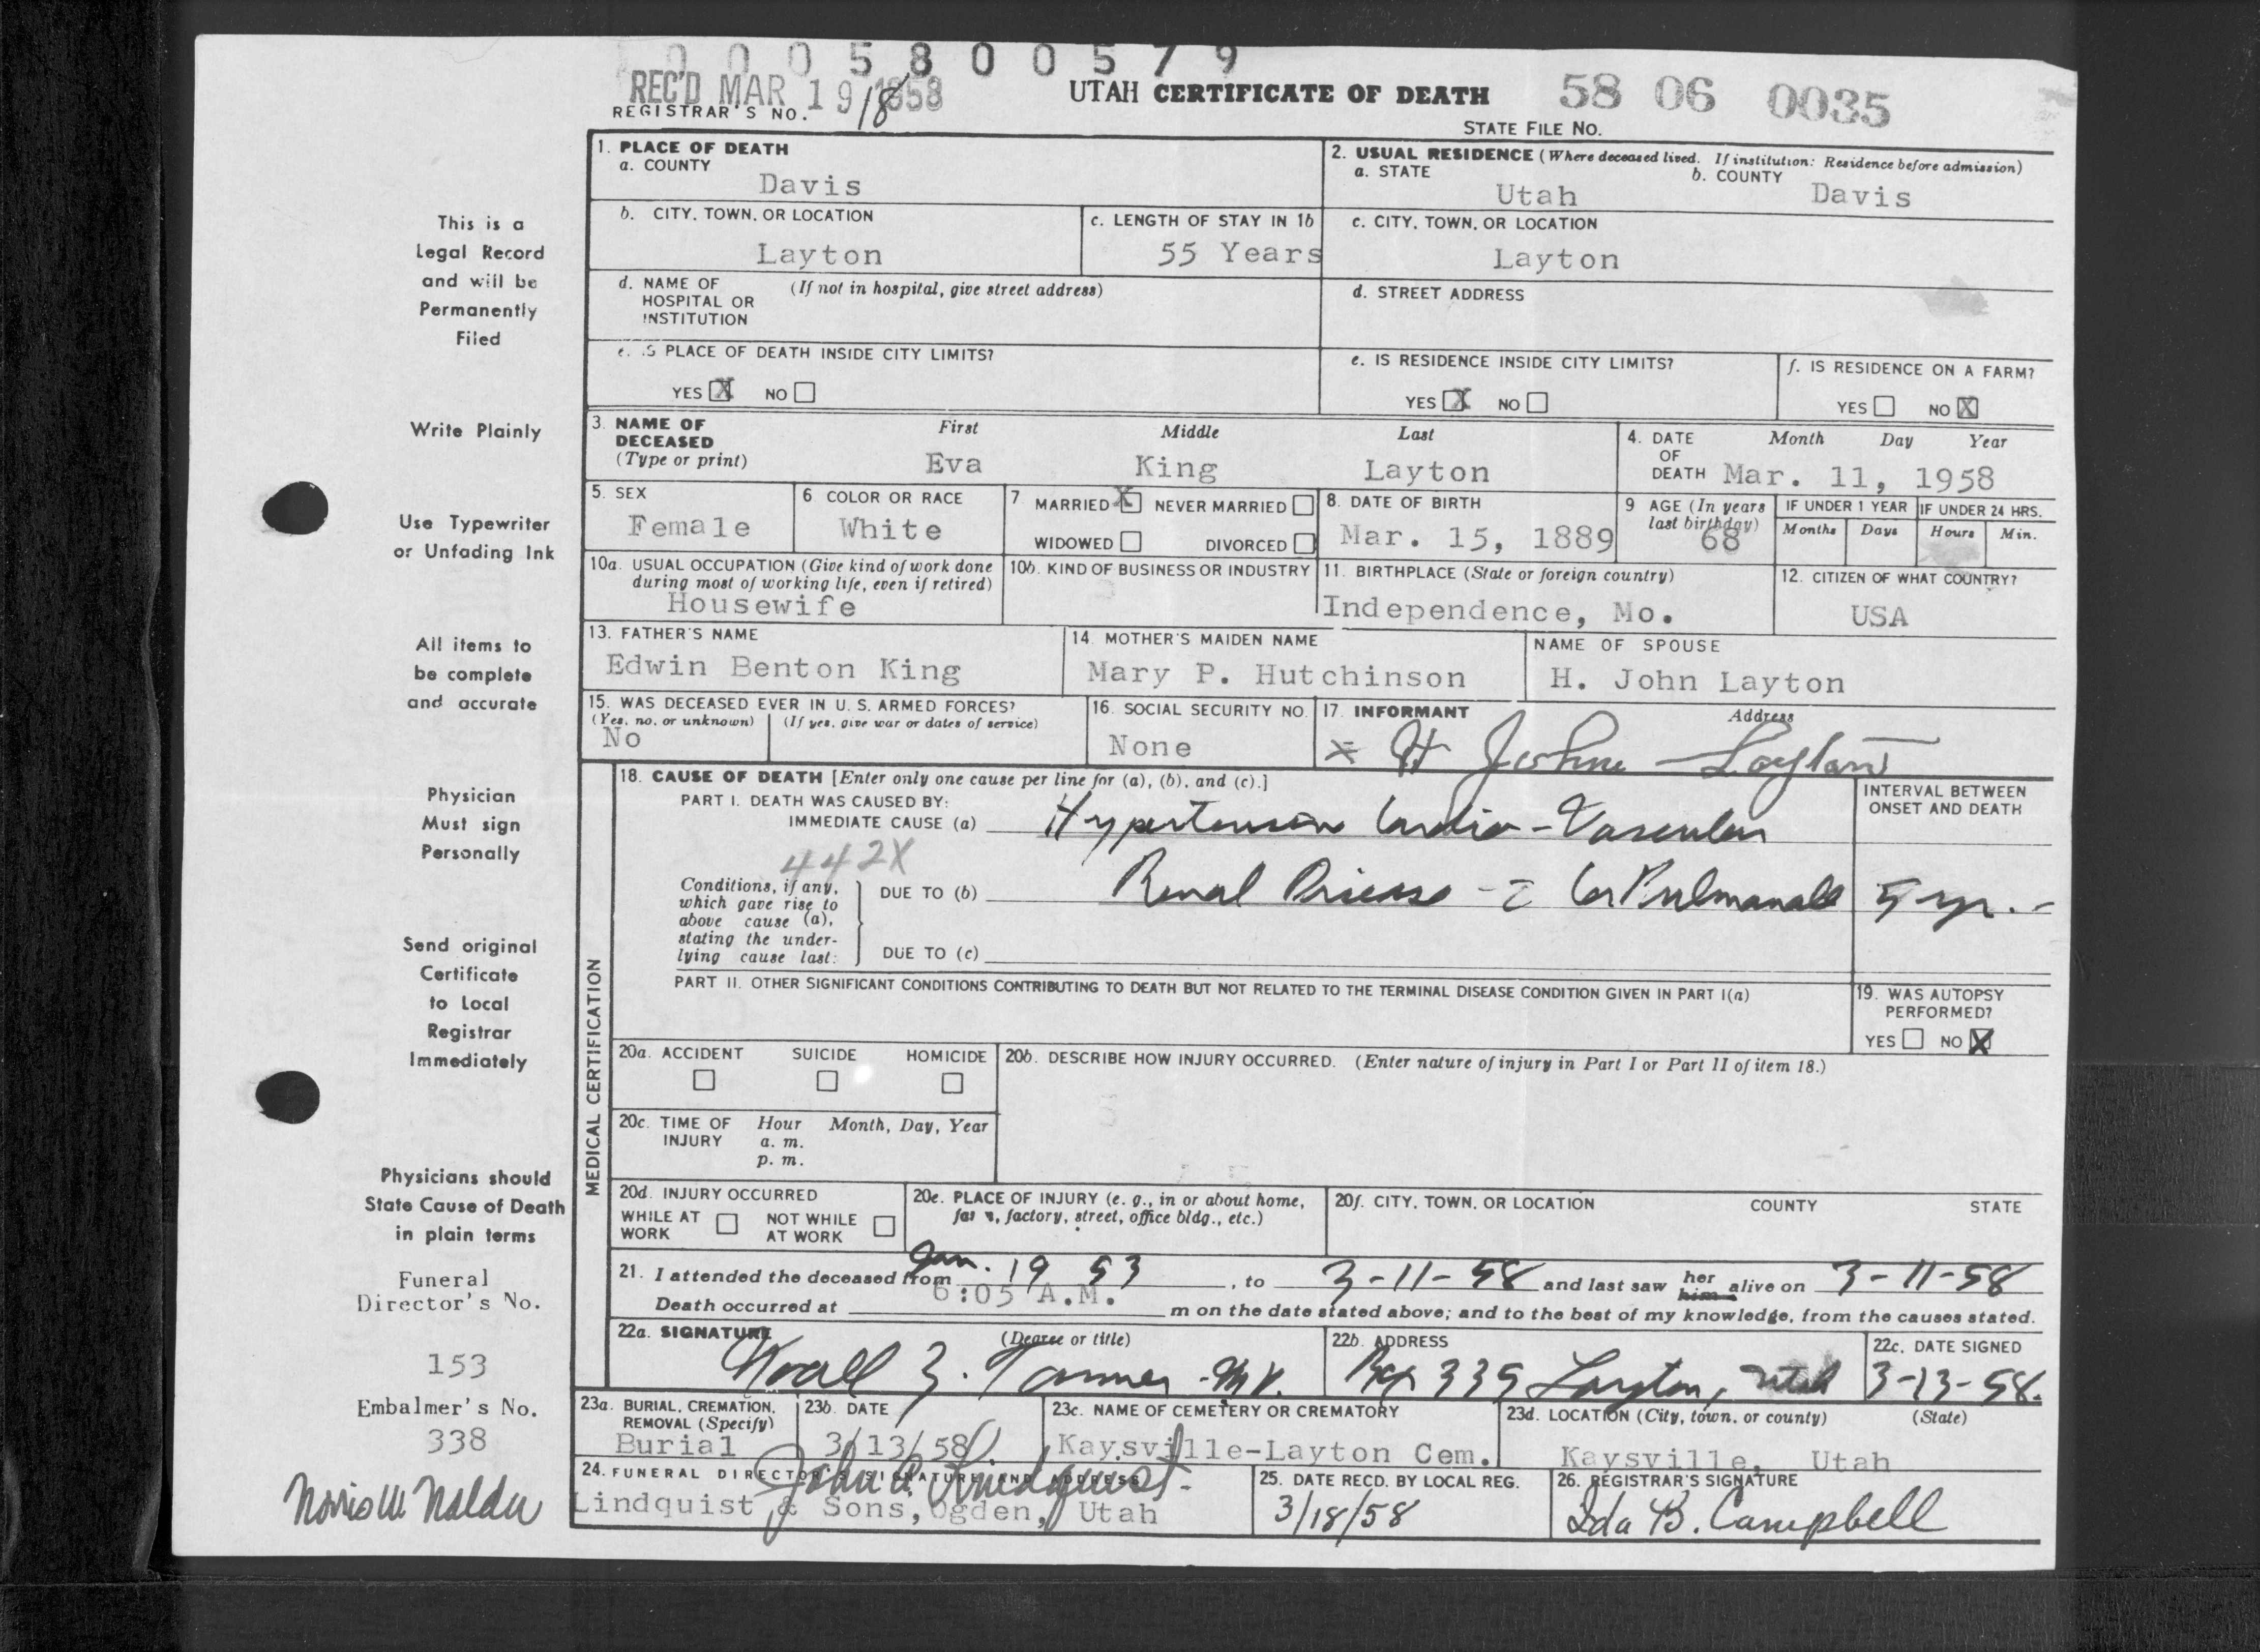 0 0 0 5 8 0 0 5 7 9
REC'D MAR 19 1958
REGISTRAR'S NO. 18
UTAH CERTIFICATE OF DEATH
58 06 0035
STATE FILE NO.
This is a
Legal Record
and will be
Permanently
Filed
Write Plainly
Use Typewriter
or Unfading Ink
All items to
be complete
and accurate
Physician
Must sign
Personally
Send original
Certificate
to Local
Registrar
Immediately
Physicians should
State Cause of Death
in plain terms
Funeral
Director's No.
153
Embalmer's No.
338
1. PLACE OF DEATH
a. COUNTY
Davis
2. USUAL RESIDENCE (Where deceased lived. If institution: Residence before admission)
a. STATE
Utah
b. COUNTY
Davis
b. CITY, TOWN, OR LOCATION
Layton
c. LENGTH OF STAY IN 1b
55 Years
c. CITY, TOWN, OR LOCATION
Layton
d. NAME OF (If not in hospital, give street address)
HOSPITAL OR
INSTITUTION
d. STREET ADDRESS
e. IS PLACE OF DEATH INSIDE CITY LIMITS?
YES X NO
e. IS RESIDENCE INSIDE CITY LIMITS?
YES X NO
f. IS RESIDENCE ON A FARM?
YES NO X
3. NAME OF
DECEASED
(Type or print)
First Middle Last
Eva King Layton
4. DATE
OF
DEATH
Month Day Year
Mar. 11, 1958
5. SEX
Female
6 COLOR OR RACE
White
7 MARRIED X NEVER MARRIED
WIDOWED DIVORCED
8. DATE OF BIRTH
Mar. 15, 1889
9 AGE (In years
last birthday)
68
IF UNDER 1 YEAR
Months Days
IF UNDER 24 HRS.
Hours Min.
10a. USUAL OCCUPATION (Give kind of work done
during most of working life, even if retired)
Housewife
10b. KIND OF BUSINESS OR INDUSTRY
11. BIRTHPLACE (State or foreign country)
Independence, Mo.
12. CITIZEN OF WHAT COUNTRY?
USA
13. FATHER'S NAME
Edwin Benton King
14. MOTHER'S MAIDEN NAME
Mary P. Hutchinson
NAME OF SPOUSE
H. John Layton
15. WAS DECEASED EVER IN U. S. ARMED FORCES?
(Yes, no, or unknown) (If yes, give war or dates of service)
No
16. SOCIAL SECURITY NO.
None
17. INFORMANT Address
x H John Layton
MEDICAL CERTIFICATION
18. CAUSE OF DEATH [Enter only one cause per line for (a), (b), and (c).]
PART I. DEATH WAS CAUSED BY:
IMMEDIATE CAUSE (a) Hypertensive Cardio-Vascular
INTERVAL BETWEEN
ONSET AND DEATH
442X
Conditions, if any,
which gave rise to
above cause (a),
stating the under-
lying cause last:
DUE TO (b) Renal Disease - c Cor Pulmonale
5 yr. -
DUE TO (c)
PART II. OTHER SIGNIFICANT CONDITIONS CONTRIBUTING TO DEATH BUT NOT RELATED TO THE TERMINAL DISEASE CONDITION GIVEN IN PART I(a)
19. WAS AUTOPSY
PERFORMED?
YES NO X
20a. ACCIDENT SUICIDE HOMICIDE
20b. DESCRIBE HOW INJURY OCCURRED. (Enter nature of injury in Part I or Part II of item 18.)
20c. TIME OF Hour Month, Day, Year
INJURY a. m.
p. m.
20d. INJURY OCCURRED
WHILE AT NOT WHILE
WORK AT WORK
20e. PLACE OF INJURY (e. g., in or about home,
farm, factory, street, office bldg., etc.)
20f. CITY, TOWN, OR LOCATION COUNTY STATE
21. I attended the deceased from Jan. 19 53, to 3-11-58 and last saw her him alive on 3-11-58
Death occurred at 6:05 A.M. m on the date stated above; and to the best of my knowledge, from the causes stated.
22a. SIGNATURE (Degree or title)
Noall Z. Tanner M.D.
22b. ADDRESS
Box 335 Layton, Utah
22c. DATE SIGNED
3-13-58.
23a. BURIAL, CREMATION,
REMOVAL (Specify)
Burial
23b. DATE
3/13/58
23c. NAME OF CEMETERY OR CREMATORY
Kaysville-Layton Cem.
23d. LOCATION (City, town, or county) (State)
Kaysville, Utah
24. FUNERAL DIRECTOR'S SIGNATURE AND ADDRESS
John A. Lindquist.
Lindquist & Sons, Ogden, Utah
25. DATE RECD. BY LOCAL REG.
3/18/58
26. REGISTRAR'S SIGNATURE
Ida B. Campbell